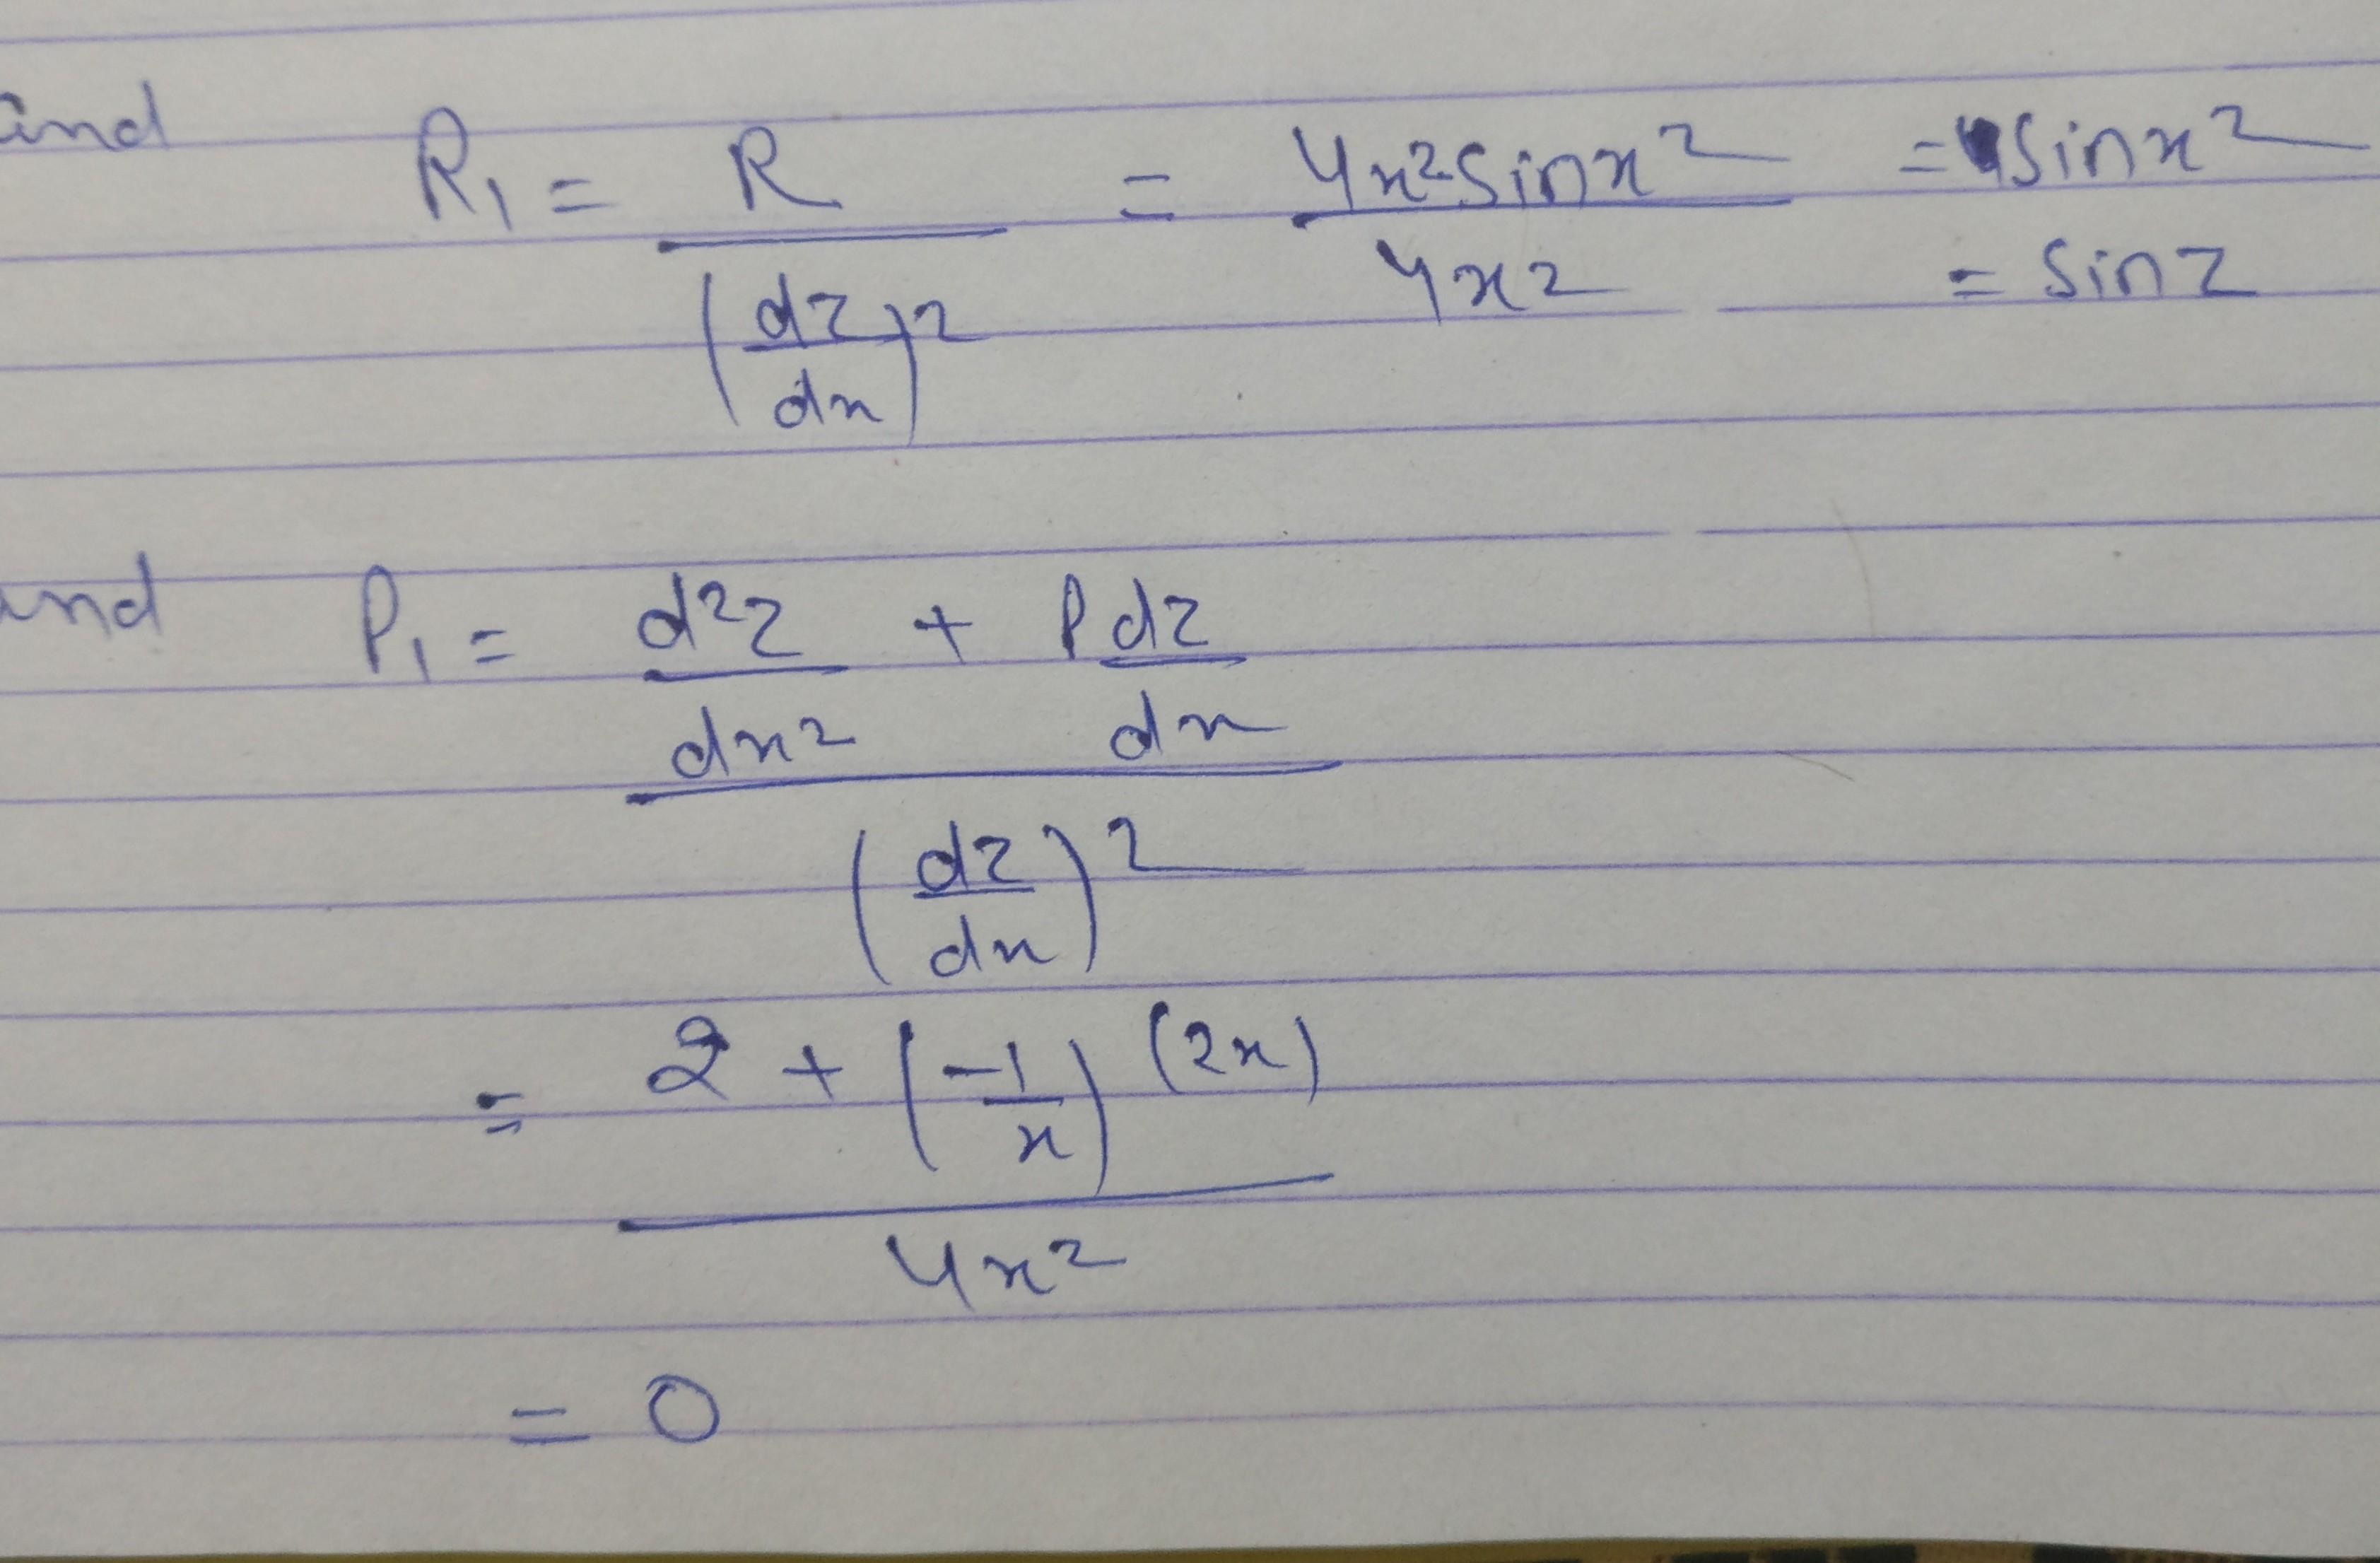 and R₁ = R / (dz/dx)² = 4x²sinx² / 4x² = sinx²
= sinz
and P₁ = (d²z/dx² + P dz/dx) / (dz/dx)²
= (2 + (-1/x)(2x)) / 4x²
= 0